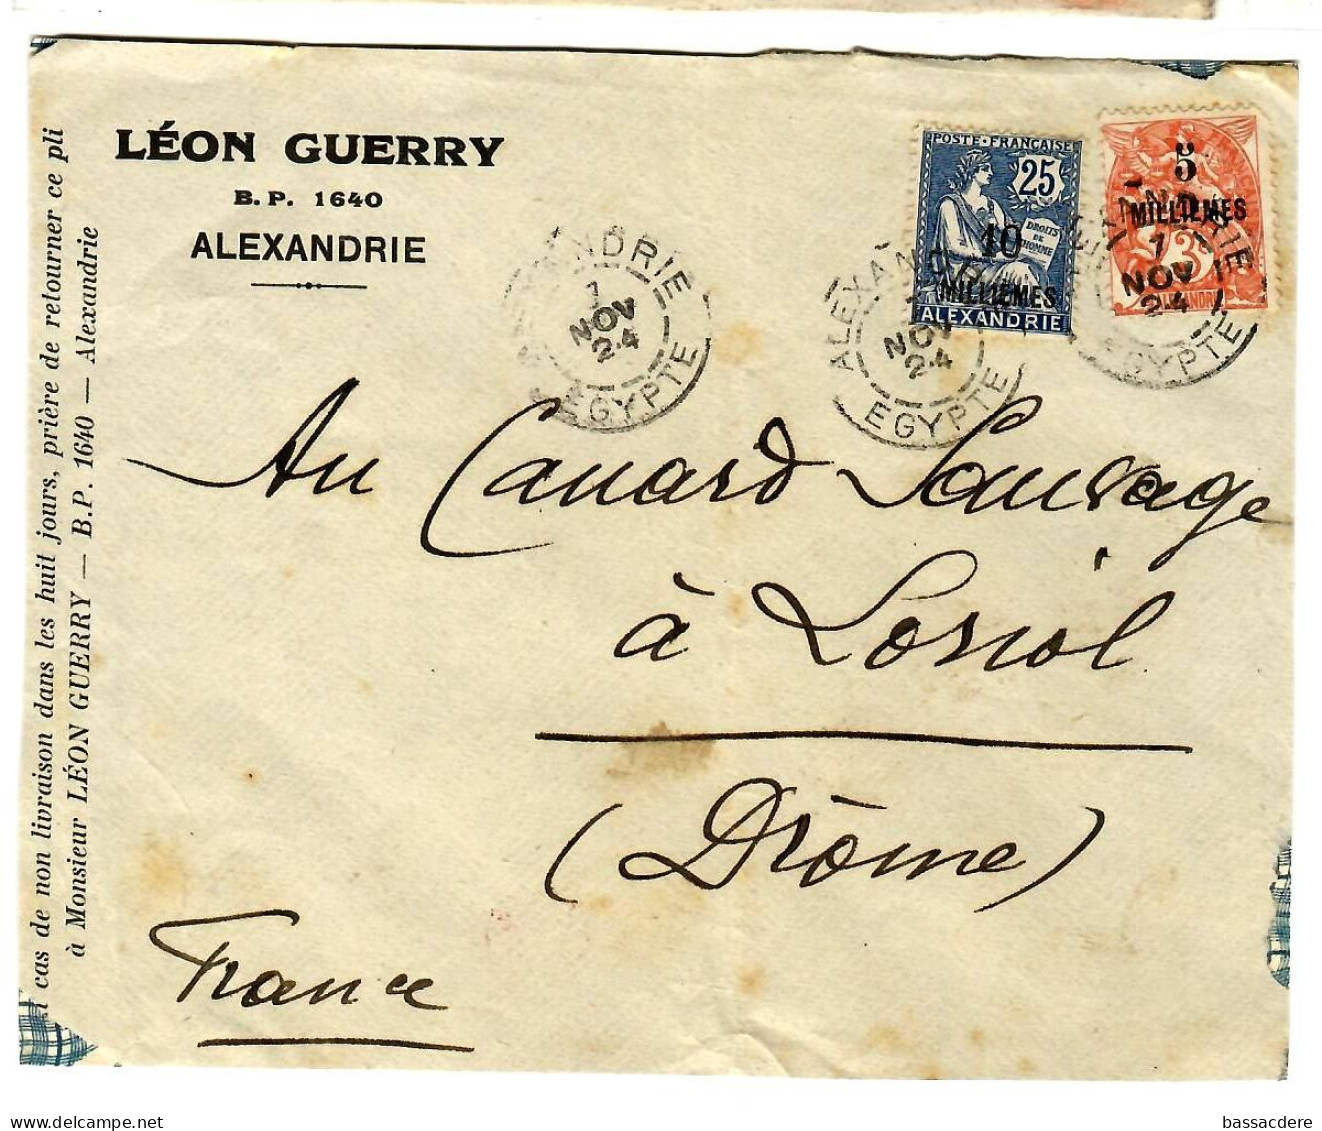 LÉON GUERRY
B. P. 1640
ALEXANDRIE
cas de non livraison dans les huit jours, prière de retourner ce pli
à Monsieur LÉON GUERRY — B.P. 1640 — Alexandrie
POSTE FRANÇAISE
25
DROITS
DE
L'HOMME
10
MILLIÈMES
ALEXANDRIE
5
MILLIÈMES
ALEXANDRIE
1
NOV
24
EGYPTE
ALEXANDRIE
NOV
24
EGYPTE
1
NOV
24
EGYPTE
Au Canard Sauvage
à Loriol
(Drôme)
France
bassacdere